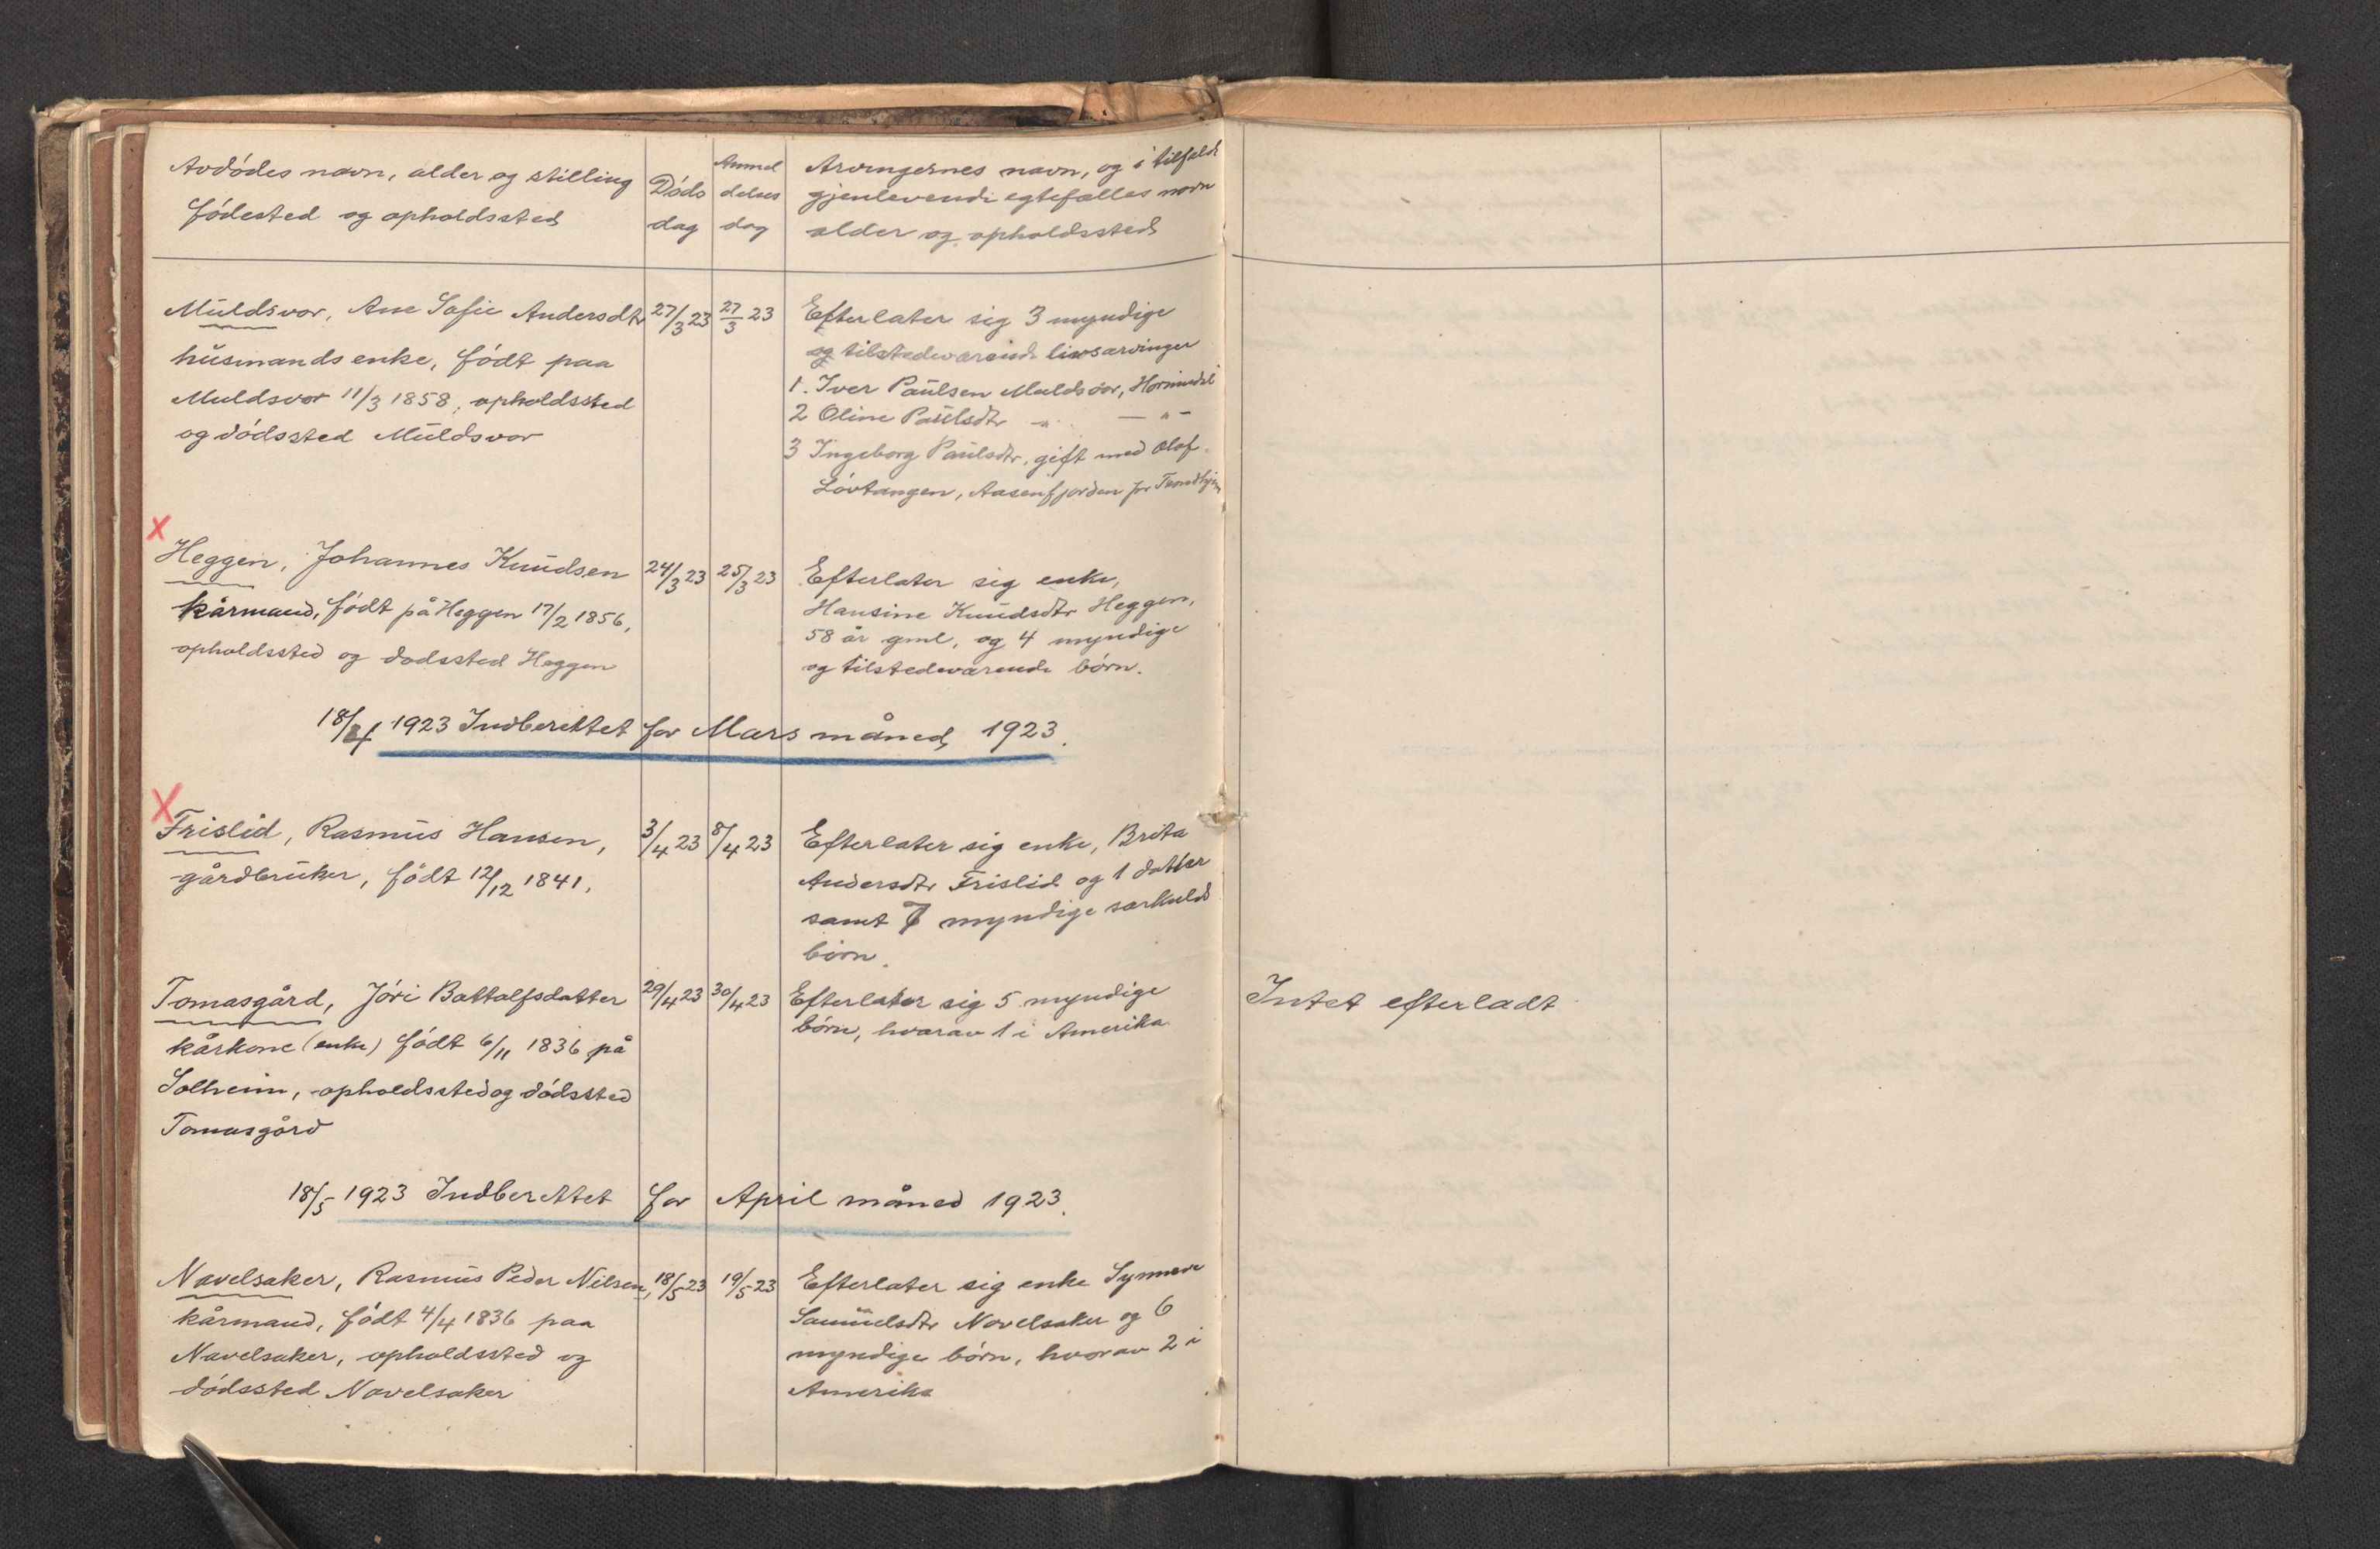 Avdódes navn, alder og stilling
fódested og opholdssted
Dóds
dag
Anmel
delses
dag
Arvingernes navn, og i tilfælde
gjenlevende egtefælles navn
alder og opholdssted
Muldsvor, Ane Sofie Andersdtr
húsmands enke, fódt paa
Muldsvor 11/3 1858, opholdssted
og dódssted Muldsvor
27/3 23
27/3 23
Efterlater sig 3 myndige
og tilstedeværende livsarvinger
1. Iver Paulsen Muldsvor, Hornindal
2 Oline Paulsdtr -„- -„-
3 Ingeborg Paulsdtr, gift med Olaf
Lóvtangen, Aasenfjorden pr Trondhjem
X
Heggen, Johannes Knudsen
kårmand, fódt på Heggen 17/2 1856,
opholdssted og dodssted Heggen
24/3 23
25/3 23
Efterlater sig enke,
Hansine Knudsdtr Heggen,
58 år gml, og 4 myndige
og tilstedeværende bórn.
18/4 1923 Indberettet for Mars måned 1923.
X
Frislid, Rasmus Hansen,
gårdbruker, fódt 12/12 1841.
3/4 23
8/4 23
Efterlater sig enke, Brita
Andersdtr Frislid og 1 datter
samt 7 myndige særkulds
bórn.
Tomasgård, Jóri Battalfsdatter
kårkone (enke) fódt 6/11 1836 på
Solheim, opholdssted og dódssted
Tomasgård
29/4 23
30/4 23
Efterlater sig 5 myndige
bórn, hvorav 1 i Amerika.
Intet efterladt
18/5 1923 Indberettet for April måned 1923.
Navelsaker, Rasmus Peder Nilsen,
kårmand, fódt 4/4 1836 paa
Navelsaker, opholdssted og
dódssted Navelsaker
18/5 23
19/5 23
Efterlater sig enke Synneve
Samuelsdtr Navelsaker og 6
myndige bórn, hvorav 2 i
Amerika